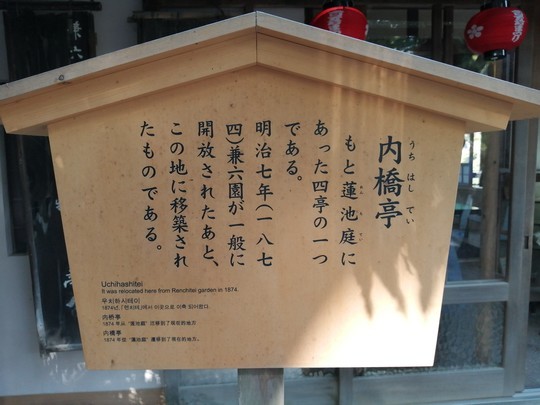 内橋亭
うちはしてい
もと蓮池庭に
あった四亭の一つ
である。
明治七年(一八七
四)兼六園が一般に
開放されたあと、
この地に移築され
たものである。
Uchihashitei
It was relocated here from Renchitei garden in 1874.
우치하시테이
内桥亭
1874 年从“莲池庭”迁移到了现在的地方
内橋亭
1874 年從“蓮池庭”遷移到了現在的地方。